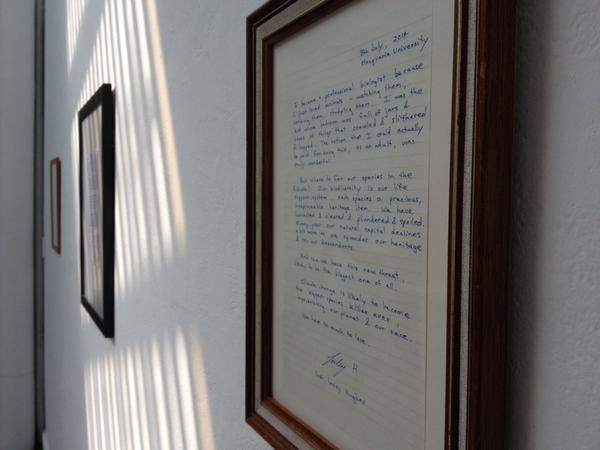 8th July, 2014
Macquarie University
I became a professional biologist because
I just loved animals - watching them,
catching them, studying them. I was the
kid whose bedroom was full of jars &
boxes of things that crawled & slithered
& hopped. The notion that I could actually
be paid for doing this, as an adult, was
truly wonderful.
But where to for our species in the
future? Our biodiversity is our life
support system, each species a precious,
irreplaceable heritage item. We have
& cleared & plundered & spoiled.
Every year our natural capital declines
a bit more as we squander our heritage
& rob our descendants.
And now we have this new threat,
likely to be the biggest one of all.
Climate change is likely to become
the biggest species killer ever,
impoverishing our planet & our race.
We have so much to lose.
Lesley H
Prof Lesley Hughes